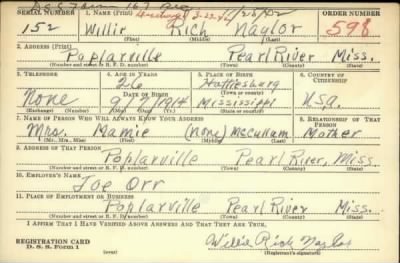 SERIAL NUMBER 1. NAME (Print) ORDER NUMBER
152 Willie Rich Naylor 598
2. ADDRESS (Print)
Poplarville Pearl River Miss.
(Town) (County) (State)
3. TELEPHONE 4. AGE IN YEARS 5. PLACE OF BIRTH 6. COUNTRY OF CITIZENSHIP
26 Hattiesburg
DATE OF BIRTH (Town or county)
None 9 7 1914 Mississippi Usa.
(Exchange) (Number) (Mo.) (Day) (Yr.) (State or country)
7. NAME OF PERSON WHO WILL ALWAYS KNOW YOUR ADDRESS 8. RELATIONSHIP OF THAT PERSON
Mrs. Mamie (None) McCullum Mother
(Mr., Mrs., Miss) (First) (Middle) (Last)
9. ADDRESS OF THAT PERSON
Poplarville Pearl River, Miss.
(Number and street or R. F. D. number) (Town) (County) (State)
10. EMPLOYER'S NAME
Joe Orr
11. PLACE OF EMPLOYMENT OR BUSINESS
Poplarville Pearl River Miss.
(Number and street or R. F. D. number) (Town) (County) (State)
I AFFIRM THAT I HAVE VERIFIED ABOVE ANSWERS AND THAT THEY ARE TRUE.
REGISTRATION CARD
D. S. S. Form 1
Willie Rich Naylor
(Registrant's signature)